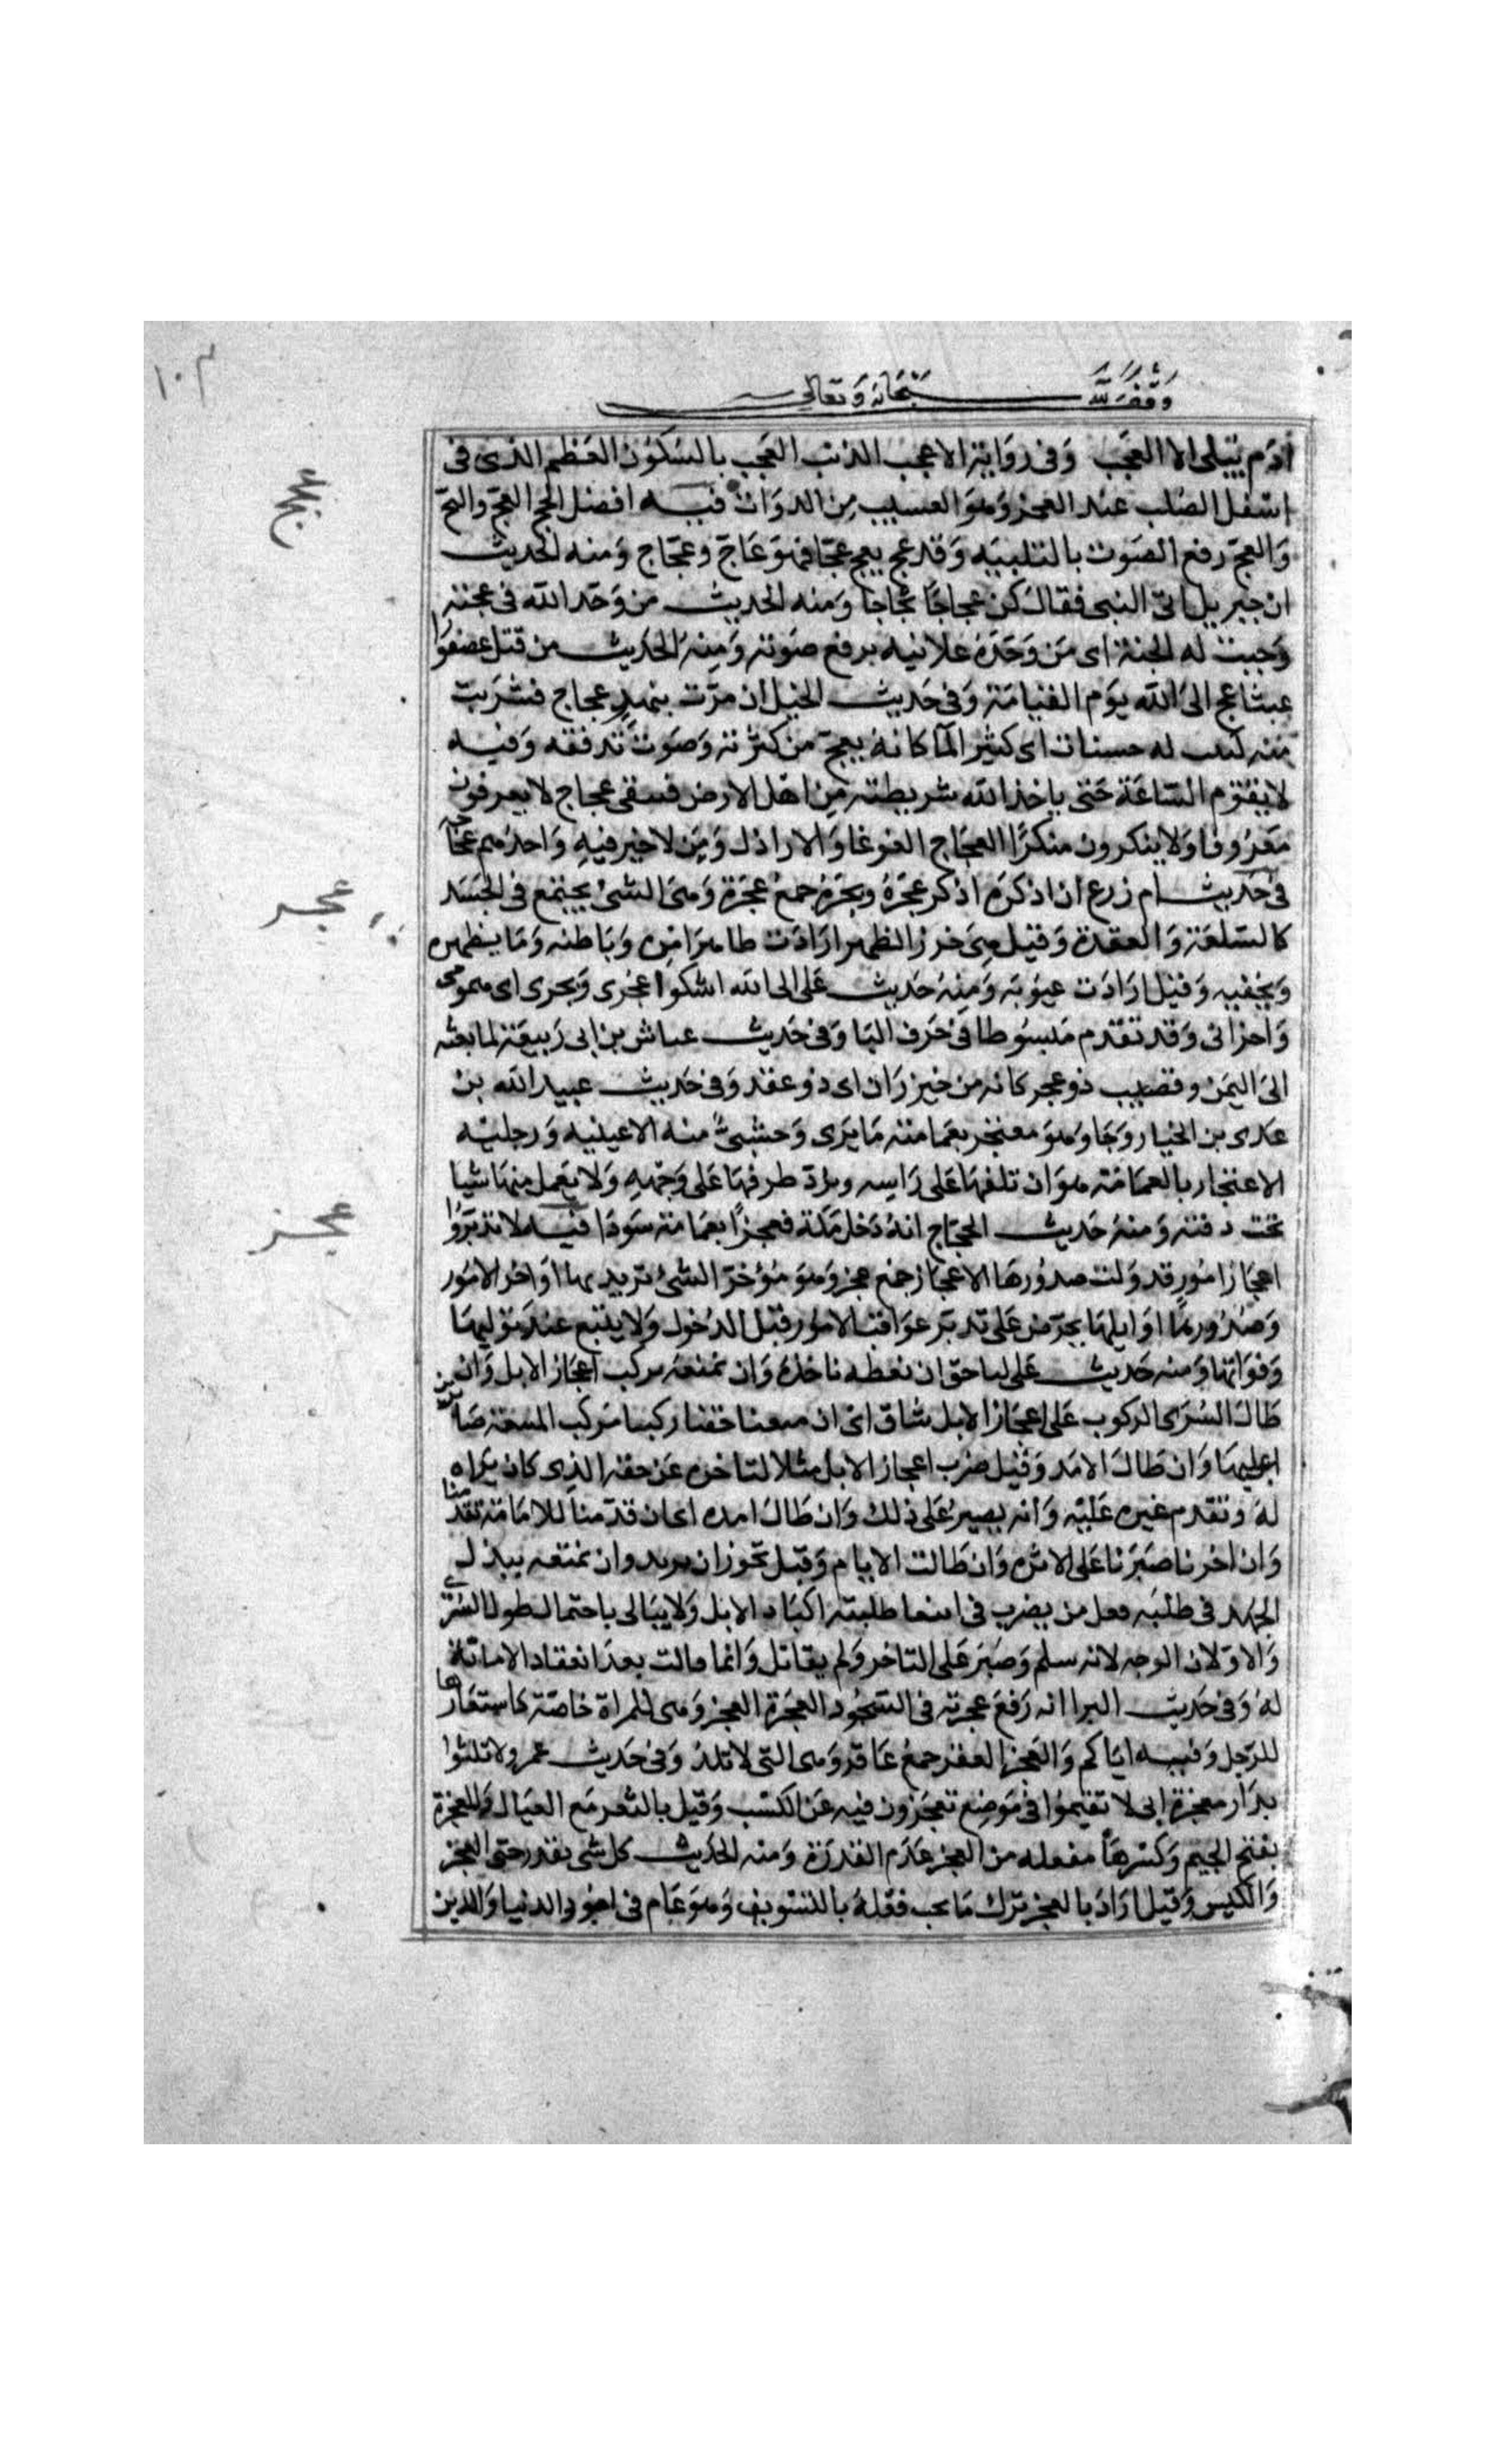 ١٠٣
وقف لله سبحانه وتعالى
ادم يبلى الا العجب وفى رواية الاعجب الذنب العجب بالسكون العظم الذى فى
عجج
اسفل الصلب عند العجز وهو العسيب من الدواب فيه افضل الحج العج والثج
والعج رفع الصوت بالتلبيه وقد عج يعج عجا فهو عاج وعجاج ومنه الحديث
ان جبريل اتى النبى فقال كن عجاجا ثجاجا ومنه الحديث من وحد الله فى عجته
وجبت له الجنة اى من وحده علانيه برفع صوته ومنه الحديث من قتل عصفورا
عبثا عج الى الله يوم القيامة وفى حديث الخيل ان مرت بنهر عجاج فشربت
منه كتب له حسنات اى كثير الما كانه يعج من كثرته وصوت تدفقه وفيه
لا يقوم الساعة حتى ياخذ الله شريطته من اهل الارض فيبقى عجاج لا يعرفون
معروفا ولا ينكرون منكرا العجاج الغوغا والاراذل ومن لا خير فيه واحدهم عجاجه
عجر
فى حديث ام زرع ان اذكره اذكر عجره وبجره جمع عجرة وهى الشئ يجتمع فى الجسد
كالسلعة والعقدة وقيل هى خرز الظهر ارادت ظاهر امره وباطنه وما يظهره
ويخفيه وقيل ارادت عيوبه ومنه حديث على الى الله اشكوا عجرى وبجرى اى همومى
واحزانى وقد تقدم مبسوطا فى حرف البا وفى حديث عياش بن ابى ربيعة لما بعثه
الى اليمن وقضيب ذو عجر كانه من خيزران اى ذو عقد وفى حديث عبيد الله بن
عدى بن الخيار وجا وهو معتجر بعمامته ما يرى وحشى منه الا عينيه ورجليه
الاعتجار بالعمامة هو ان تلفها على راسه ويرد طرفها على وجهه ولا يعمل منها شيا
عجز
تحت دقنه ومنه حديث الحجاج انه دخل مكة معجرا بعمامة سودا فيه لا تدبروا
اعجاز امور قد ولت صدورها الاعجاز جمع عجز وهو مؤخر الشئ تريد بها اواخر الامور
وصدورها اوايلها يحرض على تدبر عواقب الامور قبل الدخول ولا يتبع عند توليها
وفواتها ومنه حديث على لنا حق ان نعطه ناخذه وان نمنعه نركب اعجاز الابل وان
طال السرى الركوب على اعجاز الابل شاق اى ان منعنا حقنا ركبنا مركب المشقة صابرين
عليها وان طال الامد وقيل ضرب اعجاز الابل مثلا لتاخره عن حقه الذى كان يراه
له وتقدم غيره عليه وانه يصبر على ذلك وان طال امده اى ان قدمنا للامامة تقدمنا
وان اخرنا صبرنا على الاثره وان طالت الايام وقيل يجوز ان يريد وان نمنعه يبذل
الجهد فى طلبه فعل من يضرب فى ابتغا طلبته اكباد الابل ولا يبالى باحتمال طول السرى
والاولان الوجه لانه سلم وصبر على التاخر ولم يقاتل وانما قاتل بعد انعقاد الامامة
له وفى حديث البرا انه رفع عجزته فى السجود العجزة العجز وهى للمراة خاصة فاستعارها
للرجل وفيه اياكم والعجز العقر جمع عاقر وهى التى لا تلد وفى حديث عمر ولا تلثوا
بدار معجزة اى لا تقيموا فى موضع تعجزون فيه عن الكسب وقيل بالثغر مع العيال والمعجزة
بفتح الجيم وكسرها مفعله من العجز عدم القدرة ومنه الحديث كل شى بقدر حتى العجز
والكيس وقيل اراد بالعجز ترك ما يجب فعله بالتسويف وهو عام فى امور الدنيا والدين